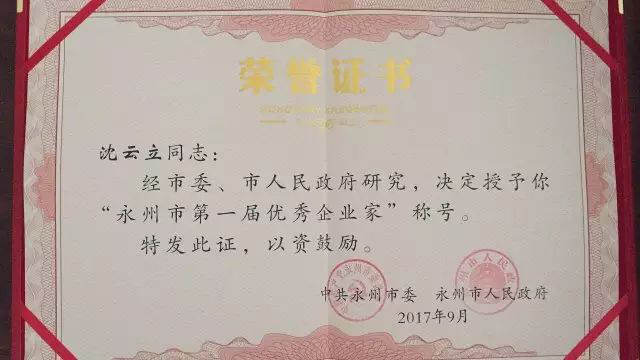 荣誉证书
沈云立同志：
经市委、市人民政府研究，决定授予你
“永州市第一届优秀企业家”称号。
特发此证，以资鼓励。
中共永州市委 永州市人民政府
2017年9月